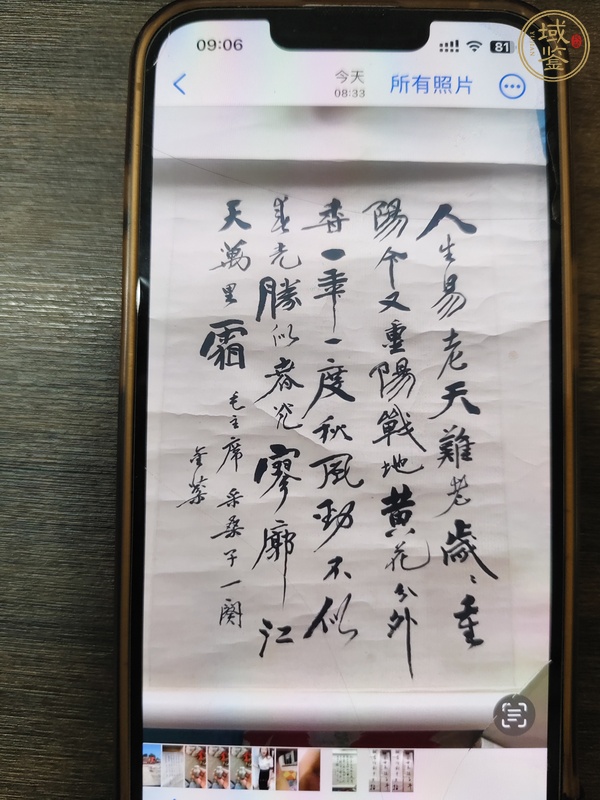 09:06
81
今天
08:33
所有照片
域鉴
人生易老天難老歲〻重
陽今又重陽戰地黃花分外
香一年一度秋風勁不似
春光勝似春光寥廓江
天萬里霜
毛主席 采桑子一闋